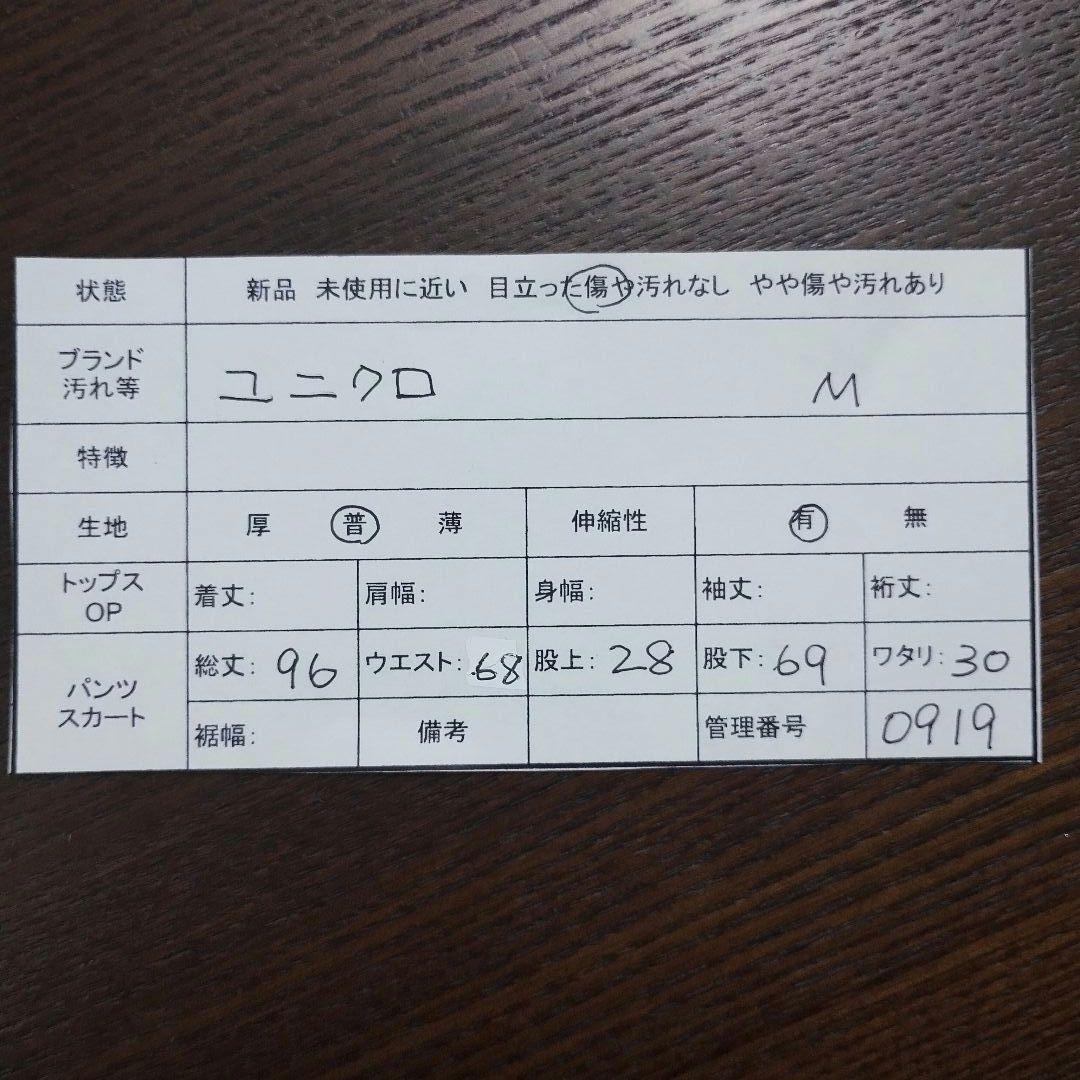 状態 新品 未使用に近い 目立った傷や汚れなし やや傷や汚れあり
ブランド
汚れ等 ユニクロ M
特徴
生地 厚 普 薄 伸縮性 有 無
トップス
OP 着丈: 肩幅: 身幅: 袖丈: 裄丈:
パンツ
スカート 総丈: 96 ウエスト: 68 股上: 28 股下: 69 ワタリ: 30
裾幅: 備考 管理番号 0919